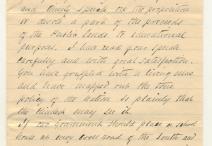 and speech on the proposition
to devote a part of the proceeds
of the Public lands to educational
purposes. I have read your speech
carefully and with great satisfaction.
You have grappled with a living issue
and have mapped out the true
policy of the nation so plainly that
the blindest may see it.
If the Government should place a school
house at every cross road of the South and